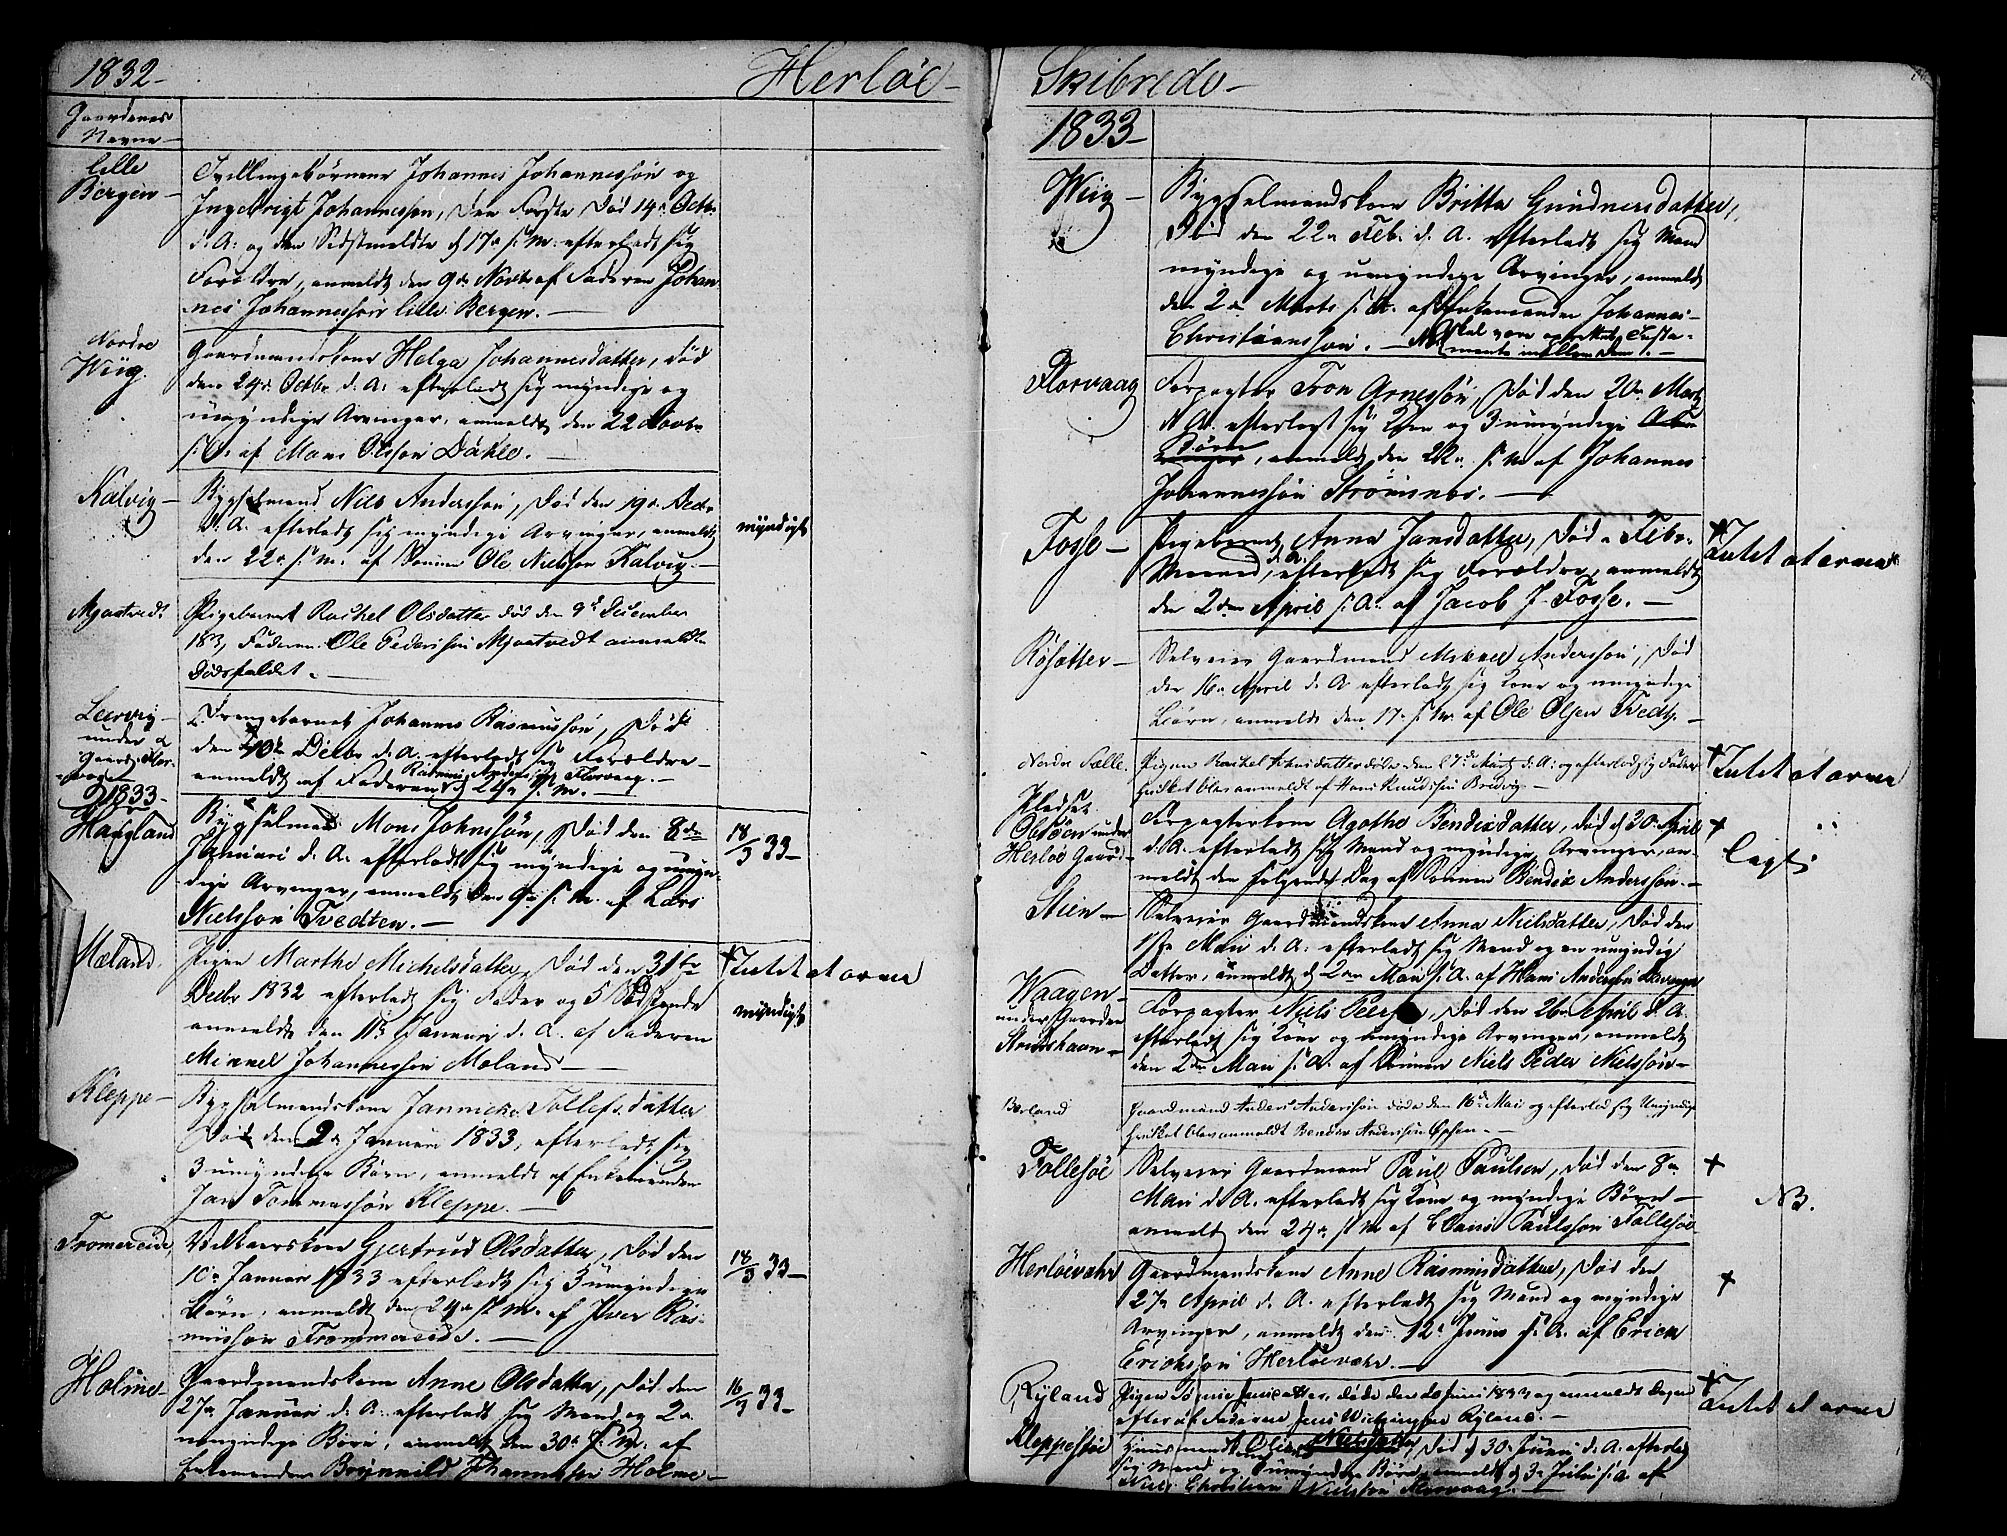 1832-
Herlöe-
Gaardenes
Navne-
Lille
Bergen-
Tvillingebørnene Johannes Johannessøn og
Ingebrigt Johannessøn, den Første død 14. Octb.
d. A. og den Sidstmeldte d 17. s. M. efterladt sig
Forældre, anmeldt den 9de Novbr af Faderen Johan-
nes Johannessøn Lille Bergen.-
Nordre
Wiig.
Gaardmandskone Helga Johannesdatter, død
den 24. Octbr. d. A. efterladt sig myndige og
umyndige Arvinger, anmeldt den 22 Novbr
s. A. af Mons Olsson Dahle.-
Kalvig-
Bygselmand Niels Anderssøn, død den 19. Decbr
d. A. efterladt sig myndige Arvinger, anmeldt
den 22. s. M. af Sønnen Ole Nielssøn Kalvig.-
myndigt
Mjaatvedt.
Pigebarnet Rachel Olsdatter død den 9d December
183, Faderen Ole Pederssøn Mjaatvedt anmeldte
Dødsfaldet.
Leervig-
under
Gaard. Flor-
vaag
Drengebarnet Johannes Rasmussøn, død
den 20de Decbr d. A. efterladt sig Forældre-
anmeldt af Faderen Rasmus Anderssøn Florvaag.-
d 24. s. M.-
1833-
Haugland
Bygselmand Mons Johnssøn, død den 8de
Januari d. A. efterladt sig myndige og umyn-
dige Arvinger, anmeldt den 9. s. M. af Lars
Nielssøn Tvedten.-
18/3 33-
Mæland.
Pigen Marthe Michelsdatter, død den 31te
Decbr 1832 efterladt sig Fader og 5 Sødskende
anmeldt den 11. Januari d. A. af Faderen
Mikkel Johannessøn Moland-
+ Intet at arve
myndigt
Kleppe-
Bygselmandskone Jannicke Tollefsdatter
død den 9. Januari 1833, efterladt sig
3 umyndige Børn, anmeldt af Enkemanden
Jan Tommassøn Kleppe.-
Tromereide
Gjertrud Olsdatter, død den
10. Januar 1833 efterladt sig 3 umyndige
Børn, anmeldt den 24. s. M. af Iver Ras-
mussøn Trommereide.-
18/3 33-
Holme-
Gaardmandskone Anne Olsdatter, død den
27. Januari d. A. efterladt sig Mand og 2
umyndige Børn, anmeldt den 30. s. M. af
Enkemanden Brynnild Johannessøn Holme-
16/3 33-
Skibrede-
1833-
Wiig-
Bygselmandskone Britta Gundnersdatter,
død den 22. Feb. d. A. efterladt sig Mand
myndige og umyndige Arvinger, anmeldt
den 2. Marts s. A. af Enkemanden Johannes
Christiansson.- NB. skal være oprettet Testa-
mente imellem dem.-
Florvaag
Forpagter Tron Arnessøn, død den 20. Marts
d. A. efterladt sig Kone og 3 umyndige
Børn, anmeldt den 22. s. M af Johannes
Johannessøn Strømsnes.-
Fosse-
Pigebarnet Anna Jansdatter, død Febr.
Maaned d. A. efterladt sig Forældre, anmeldt
den 2den April s. A. af Jacob J. Fosse.-
+ Intet at arve
Røsetter-
Selveier Gaardmand Mikael Anderssøn, død
den 16. April d. A efterladt sig Kone og umyndige
Børn, anmeldt den 17. s. M. af Ole Olsen Tvedt.-
Nordre Sælle.
Pigen Rachel Johnsdatter døde den 7de Marts d: A: og efterlod sig Fader
hvilket blev anmeldt af Hans Knudssøn Bredvig.-
+ Intet at arve
Pladset
Olsøen under
Herløe Gaard-
Forpagterkone Agathe Bendixdatter, død d 30. April
d. A. efterladt sig Mand og myndige Arvinger, an-
meldt den følgende Dag af Sønnen Bendix Anderssøn.-
+
Stien-
Selveier Gaardmandskone Anna Nielsdatter, død den
1ste Mai d. A. efterladt sig Mand og en umyndig
Datter, anmeldt d 2den Mai s. A. af Hans Anderssøn
Waagen-
under Gaarden
Strudshavn-
Forpagter Niels Peers, død den 26. April d. A.
efterladt sig Kone og umyndige Arvinger, anmeldt
den 2den Mai s. A. af Sønnen Niels Peder Nielssøn-
Berland
Gaardmand Anders Anderssøn døde den 16de Mai og efterlod sig Umyndige
hvilket blev anmeldt Bendix Anderssøn
Follesøe
Selveier Gaardmand Paul Paulsen, død den 8.
Mai d. A. efterladt sig Kone og myndige Børn-
anmeldt den 24. s. M af Claus Paulssøn Follesøe
+
NB.
Herløevær
Gaardmandskone Anne Rasmusdatter, død den
27. April d. A. efterladt sig Mand og myndige
Arvinger, anmeldt den 12. Junii s. A. af Erick
Erichssøn Herløevær.-
+
Ryland
Pigen døde den 20 Juni 1833 og anmeldt Dagen
efter af Faderen Jens Ryland.-
+ Intet at arve
Kleppesøe
Huusmandskone Nielsdatter, død d 30. Junii d. A. efterladt
sig Mand og umyndige Børn anmeldt d 3. Julii s. A. af
Niels Christian Nielssøn Florvaag.-